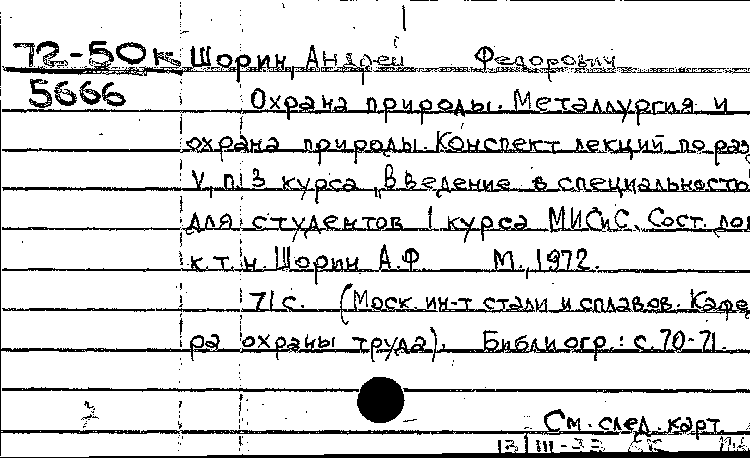 72-50к Шорин, Андрей Федорович
5666 Охрана природы. Металлургия и
охрана природы. Конспект лекций по раз
V, п.3 курса „Введение в специальность"
для студентов 1 курса МИСиС. Сост. доц
к.т.н. Шорин А.Ф М., 1972.
71с. (Моск. ин-т стали и сплавов. Кафе
ра охраны труда). Библиогр.: с.70-71.
7 См. след. карт.
13/III-73